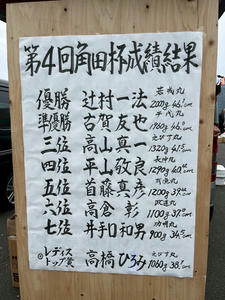 第4回角田杯成績結果
優勝 辻村一法 若戎丸 2000g 46.1cm
準優勝 古賀友也 千代丸 1960g 46.0cm
三位 高山真一 えびす丸 1320g 41.5cm
四位 平山敬良 天神丸 1290g 40.4cm
五位 首藤真彦 1200g 39.4cm
六位 高倉彰 1100g 37.0cm
七位 井手口和男 功明丸 900g 34.5cm
レディストップ賞 高橋ひろみ えびす丸 1060g 38.1cm